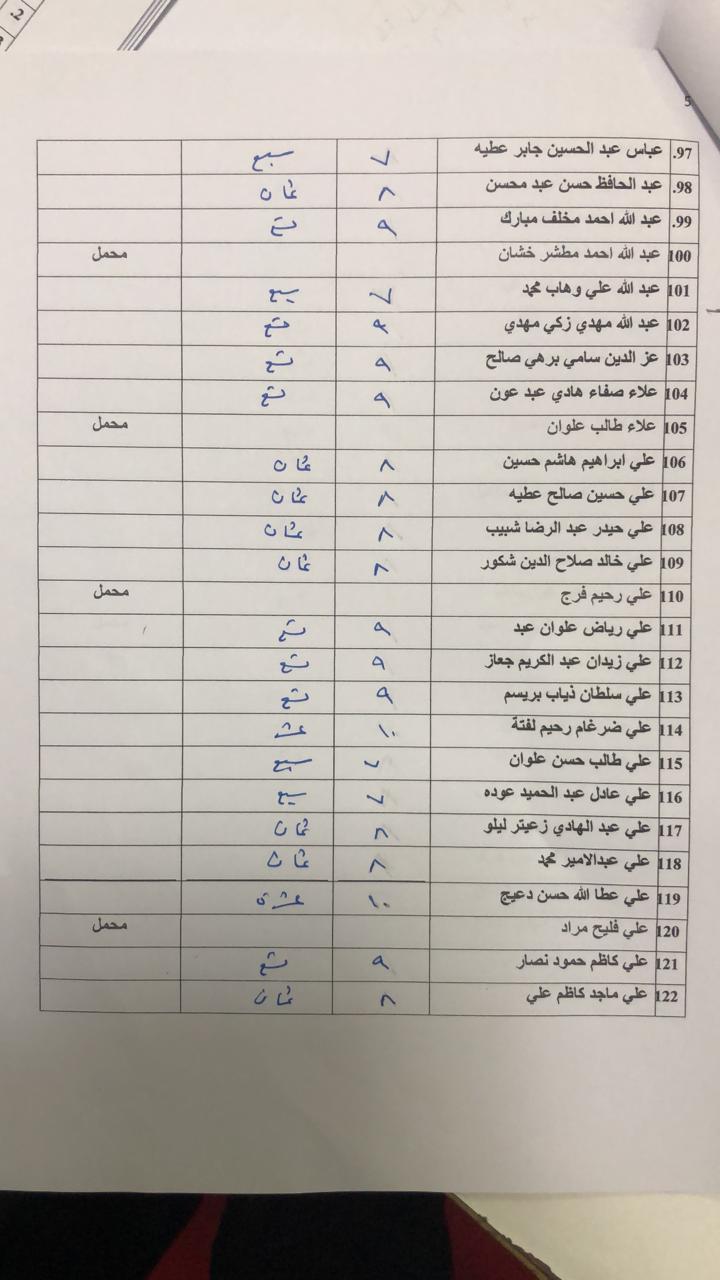 2
5
97. عباس عبد الحسين جابر عطيه ٧ سبع
98. عبد الحافظ حسن عبد محسن ٨ ثمان
99. عبد الله احمد مخلف مبارك ٩ تسع
100 عبد الله احمد مطشر خشان محمل
101 عبد الله علي وهاب محمد ٧ سبع
102 عبد الله مهدي زكي مهدي ٩ تسع
103 عز الدين سامي برهي صالح ٩ تسع
104 علاء صفاء هادي عبد عون ٩ تسع
105 علاء طالب علوان محمل
106 علي ابراهيم هاشم حسين ٨ ثمان
107 علي حسين صالح عطيه ٨ ثمان
108 علي حيدر عبد الرضا شبيب ٨ ثمان
109 علي خالد صلاح الدين شكور ٨ ثمان
110 علي رحيم فرج محمل
111 علي رياض علوان عبد ٩ تسع
112 علي زيدان عبد الكريم جعاز ٩ تسع
113 علي سلطان ذياب بريسم ٩ تسع
114 علي ضرغام رحيم لفتة ١٠ عشر
115 علي طالب حسن علوان ٧ سبع
116 علي عادل عبد الحميد عوده ٧ سبع
117 علي عبد الهادي زعيتر ليلو ٨ ثمان
118 علي عبدالامير محمد ٨ ثمان
119 علي عطا الله حسن دعيج ١٠ عشرة
120 علي فليح مراد محمل
121 علي كاظم حمود نصار ٩ تسع
122 علي ماجد كاظم علي ٨ ثمان